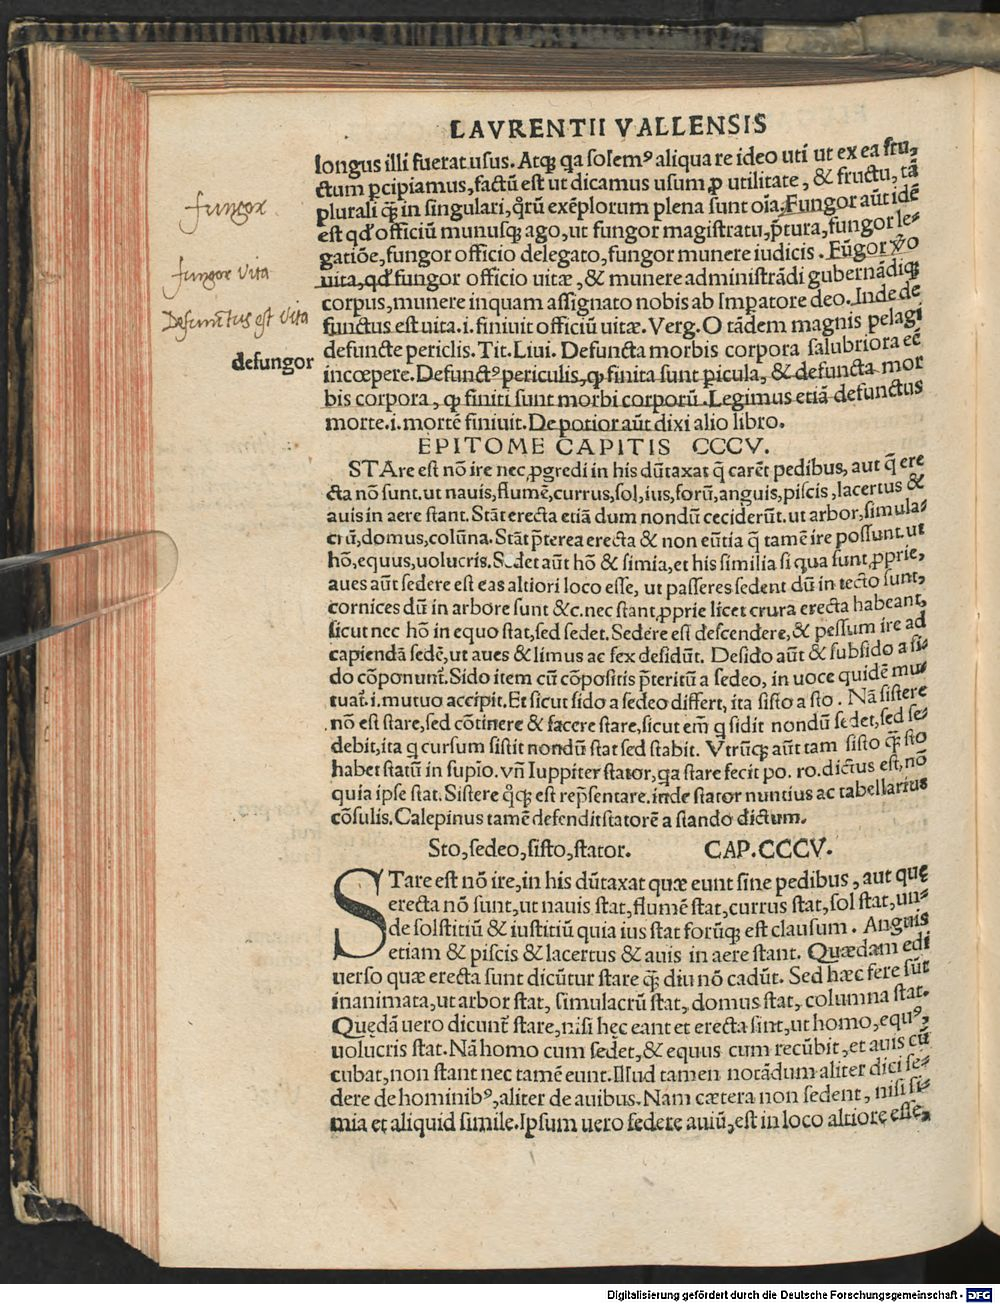 LAVRENTII VALLENSIS
longus illi fuerat usus. Atqꝫ qa solemꝰ aliqua re ideo uti ut ex ea fru,
ctum ꝑcipiamus, factū est ut dicamus usum ꝓ utilitate, & fructu, tā
plurali ꝙ̃ in singulari, qͦrū exēplorum plena sunt oīa. Fungor aūt idē
est qđ officiū munusqꝫ ago, ut fungor magistratu, p̄tura, fungor le⸗
gatiōe, fungor officio delegato, fungor munere iudicis. Fūgor ꝟo
uita, qđ fungor officio uitæ, & munere administrādi gubernādiqꝫ
corpus, munere inquam assignato nobis ab Imꝑatore deo. Inde de
functus est uita. i. finiuit officiū uitæ. Verg. O tādem magnis pelagi
defuncte periclis. Tit. Liui. Defuncta morbis corpora salubriora eē
incœpere. Defunctꝰ periculis, ꝙ finita sunt ꝑicula, & defuncta mor
bis corpora, ꝙ finiti sunt morbi corporū. Legimus etiā defunctus
morte. i. mortē finiuit. De potior aūt dixi alio libro.
fungor
fungor vita
Defunctus est vita
defungor
EPITOME CAPITIS CCCV.
STAre est nō ire nec ꝓgredi in his dūtaxat q̄ carēt pedibus, aut q̄ ere
cta nō sunt. ut nauis, flumē, currus, sol, ius, forū, anguis, piscis, lacertus &
auis in aere stant. Stāt erecta etiā dum nondū ceciderūt. ut arbor, simula⸗
crū, domus, colūna. Stāt p̄terea erecta & non eūtia q̄ tamē ire possunt. ut
hō, equus, uolucris. Sedet aūt hō & simia, et his similia si qua sunt ꝓprie,
aues aūt sedere est eas altiori loco esse, ut passeres sedent dū in tecto sunt,
cornices dū in arbore sunt &c. nec stant ꝓprie licet crura erecta habeant,
sicut nec hō in equo stat, sed sedet. Sedere est descendere, & pessum ire ad
capiendā sedē, ut aues & limus ac fex desidūt. Desido aūt & subsido a si⸗
do cōponunt̃. Sido item cū cōpositis p̄teritū a sedeo, in uoce quidē mu⸗
tuat̃. i. mutuo accipit. Et sicut sido a sedeo differt, ita sisto a sto. Nā sistere
nō est stare, sed cōtinere & facere stare, sicut em̄ q sidit nondū sedet, sed se⸗
debit, ita q cursum sistit nondū stat sed stabit. Vtrūqꝫ aūt tam sisto ꝙ̃ sto
habet statū in supīo. vñ Iuppiter stator, qa stare fecit po. ro. dictus est, nō
quia ipse stat. Sistere qͦqꝫ est rep̄sentare. inde stator nuntius ac tabellarius
cōsulis. Calepinus tamē defendit statorē a stando dictum.
Sto, sedeo, sisto, stator. CAP. CCCV.
STare est nō ire, in his dūtaxat quæ eunt sine pedibus, aut quę
erecta nō sunt, ut nauis stat, flumē stat, currus stat, sol stat, un⸗
de solstitiū & iustitiū quia ius stat forūqꝫ est clausum. Anguis
etiam & piscis & lacertus & auis in aere stant. Quædam edi
uerso quæ erecta sunt dicūtur stare ꝙ̃ diu nō cadūt. Sed hæc fere sūt
inanimata, ut arbor stat, simulacrū stat, domus stat, columna stat.
Quędā uero dicunt̃ stare, nisi hęc eant et erecta sint, ut homo, equꝰ,
uolucris stat. Nā homo cum sedet, & equus cum recūbit, et auis cū
cubat, non stant nec tamē eunt. Illud tamen notādum aliter dici se⸗
dere de hominibꝰ, aliter de auibus. Nam cætera non sedent, nisi si⸗
mia et aliquid simile. Ipsum uero sedere auiū, est in loco altiore esse,
Digitalisierung gefördert durch die Deutsche Forschungsgemeinschaft - DFG